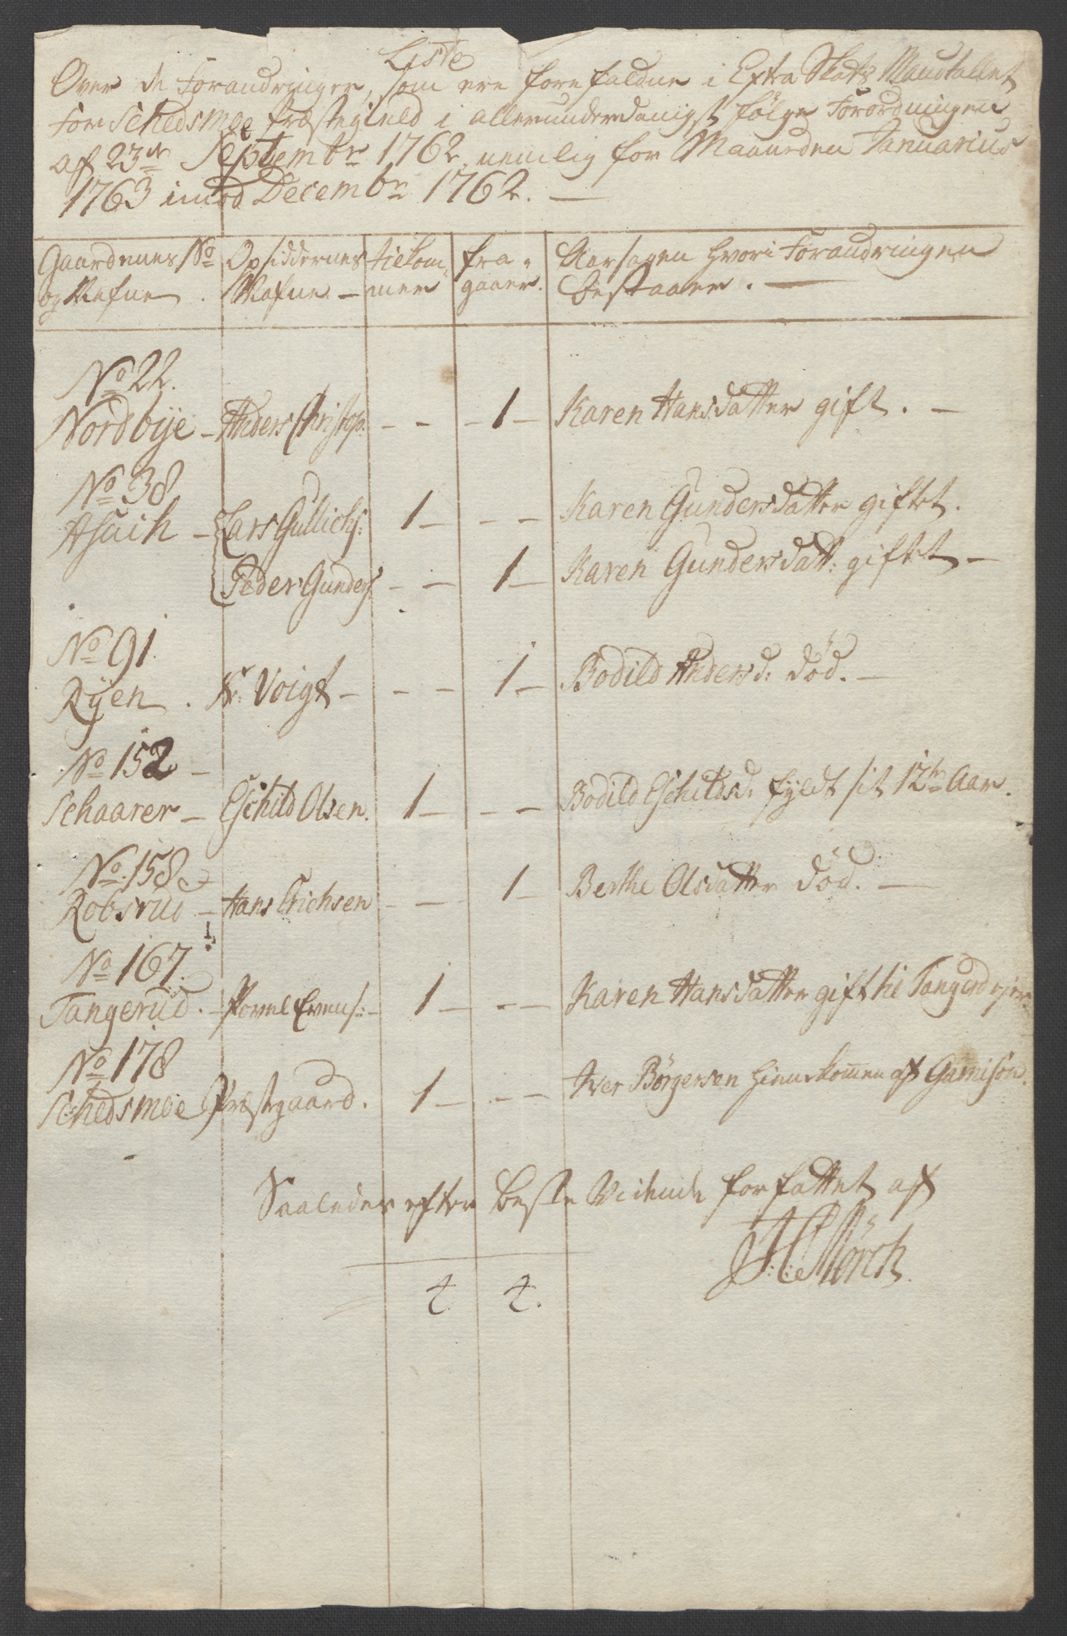 Liste
Over de Forandringer, som ere forefaldne i Extra Skats Mandtallet
for Schedsmoe Præstegield i allerunderdanigst følge Forordningen
af 23de Septembr 1762, nemlig for Maaneden Januarius
1763 imod Decembr 1762. —
Gaardenes No Opsiddernes tilkom- fra- Aarsagen hvori Forandringen
og Nafne. Nafne — mer gaaer. bestaaer. —
No 22.
Nordbye — Anders Christop: — — — 1 — Karen Hansdatter gift. —
No 38
Asach — Lars Gullichs: 1 — — — Karen Gundersdatter giftet.
Peder Gunders: — — 1 — Karen Gundersdatt: giftet —
No 91.
Ryen. Hr: Voigt — — — 1 — Bodild Andersd: død. —
No 152 —
Schaarer — Eschild Olsen. 1 — — — Bodild Eschildsd: fyldt sit 12te Aar.
No. 158
Robsrud — Hans Erichsen — — 1 — Berthe Olsdatter død. —
No 167.
Tangerud. — Povel Evens: — 1 — — — Karen Hansdatter gift til Tangerud
No 178
Schedsmoe Præstgaard. 1 — — — Iver Børgersen hiemkommen af Garnison.
Saaledes efter beste Vidende forfattet af
JHMørch.
4 4.